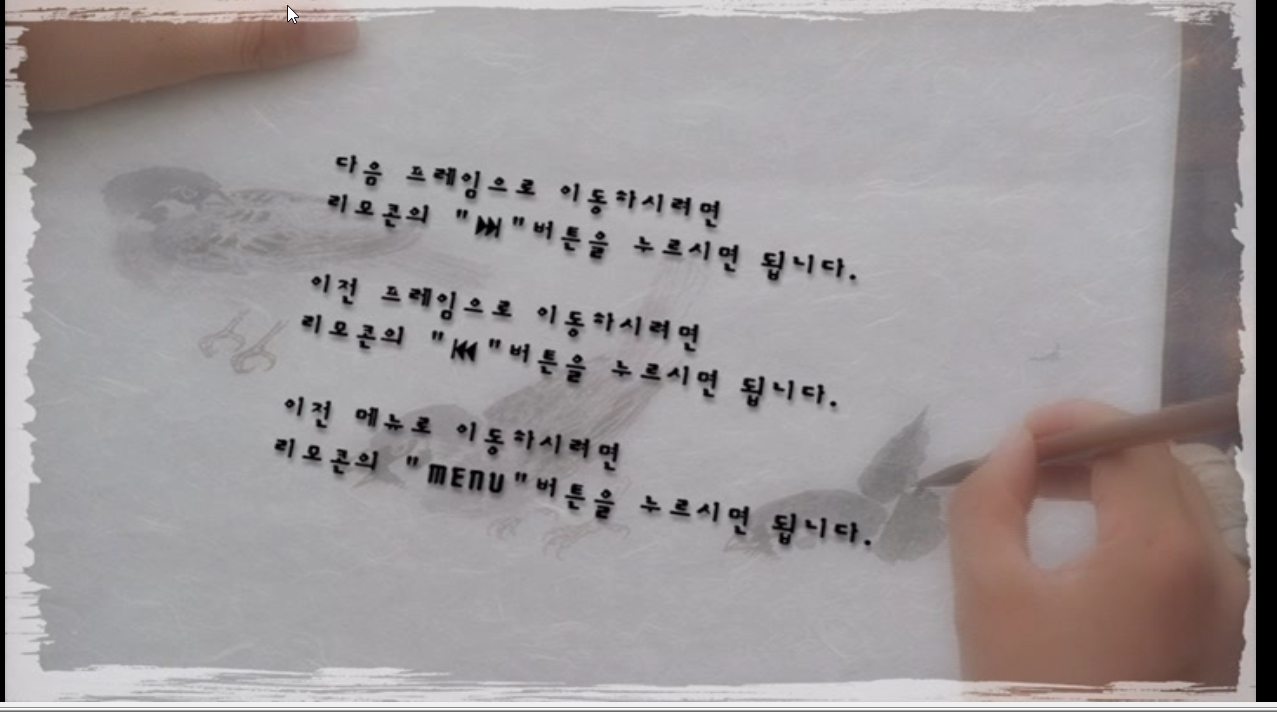 다음 프레임으로 이동하시려면
리모콘의 "⏭"버튼을 누르시면 됩니다.
이전 프레임으로 이동하시려면
리모콘의 "⏮"버튼을 누르시면 됩니다.
이전 메뉴로 이동하시려면
리모콘의 "MENU"버튼을 누르시면 됩니다.